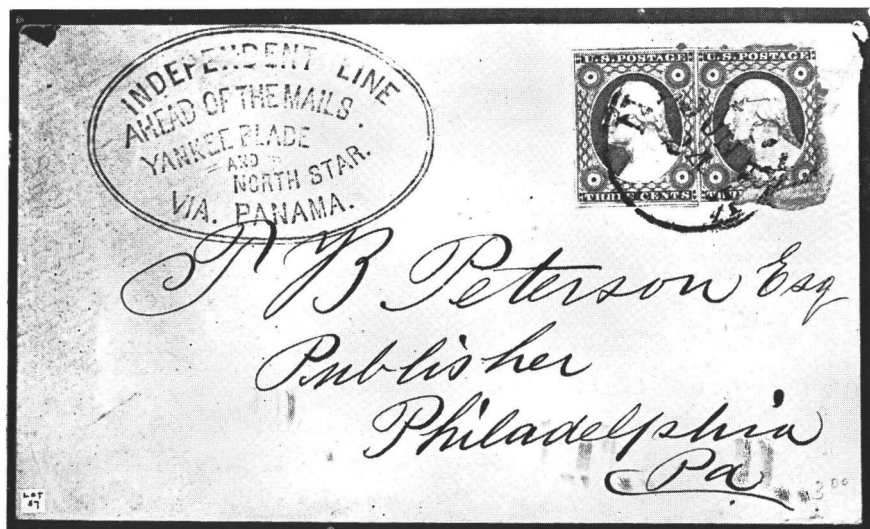 INDEPENDENT LINE
AHEAD OF THE MAILS.
YANKEE BLADE
AND
NORTH STAR.
VIA. PANAMA.
U.S. POSTAGE
THREE CENTS
U.S. POSTAGE
T B Peterson Esq
Publisher
Philadelphia
Pa
LOT